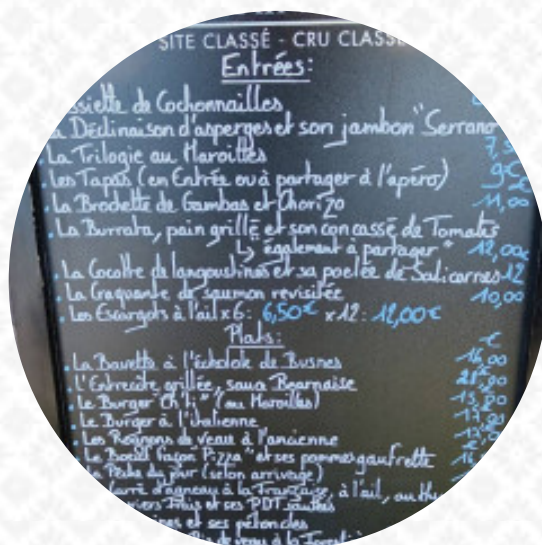 SITE CLASSÉ - CRU CLASSÉ
Entrées:
de Cochonnailles
Déclinaison d'asperges et son jambon "Serrano
La Trilogie au Maroilles
Les Tapas (en Entrée ou à partager à l'apéro) 9€
La Brochette de Gambas et Chorizo 11,00
La Burrata, pain grillé et son concassé de Tomates
↳ "également à partager" 12,00€
La Cocotte de langoustines et sa poêlée de Salicornes 12
La Craquante de saumon revisitée 10,00
Les Escargots à l'ail x6: 6,50€ x12: 12,00€
Plats: €
La Bavette à l'échalote de Busnes 16,00
L'Entrecôte grillée, sauce Béarnaise
Le Burger Ch'ti" (au Maroilles)
Le Burger à l'italienne
Les Rognons de veau à l'ancienne
Le Boeuf façon Pizza" et ses pommes gaufrette
Pêche du jour (selon arrivage)
Carré d'agneau à la Française, à l'ail, au
frais et ses PDT sautées
et ses pétoncles
de veau à la